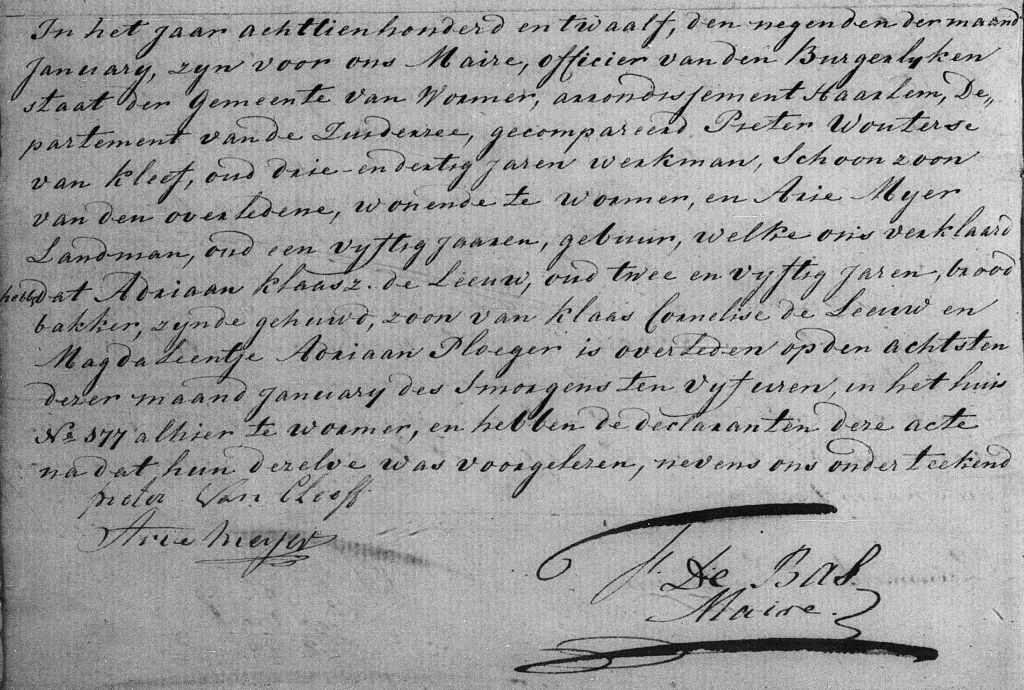 In het jaar achttienhonderd en twaalf, den negenden der maand
January, zyn voor ons Maire, officier van den Burgerlyken
staat der Gemeente van Wormer, arrondissement Haarlem, De„
partement van de Zuiderzee, gecompareerd Pieter Wouterse
van Kleef, oud drie-en dertig jaren werkman, Schoon zoon
van den overledene, wonende te Wormer, en Arie Myer
Landman, oud een vyftig jaaren, gebuur, welke ons verklaard
hebb. dat Adriaan Klaasz. de Leeuw, oud twee en vyftig jaren, brood
bakker, zynde gehuwd, zoon van Klaas Cornelise de Leeuw en
Magdaleentje Adriaan Ploeger is overleden op den achtsten
dezer maand January des Smorgens ten vyf uren, in het huis
No. 177 alhier te Wormer, en hebben de declaranten deze acte
na dat hun dezelve was voorgelezen, nevens ons onder teekend
pieter Van Cleeff
Arie meyer
De Bas.
Maire.